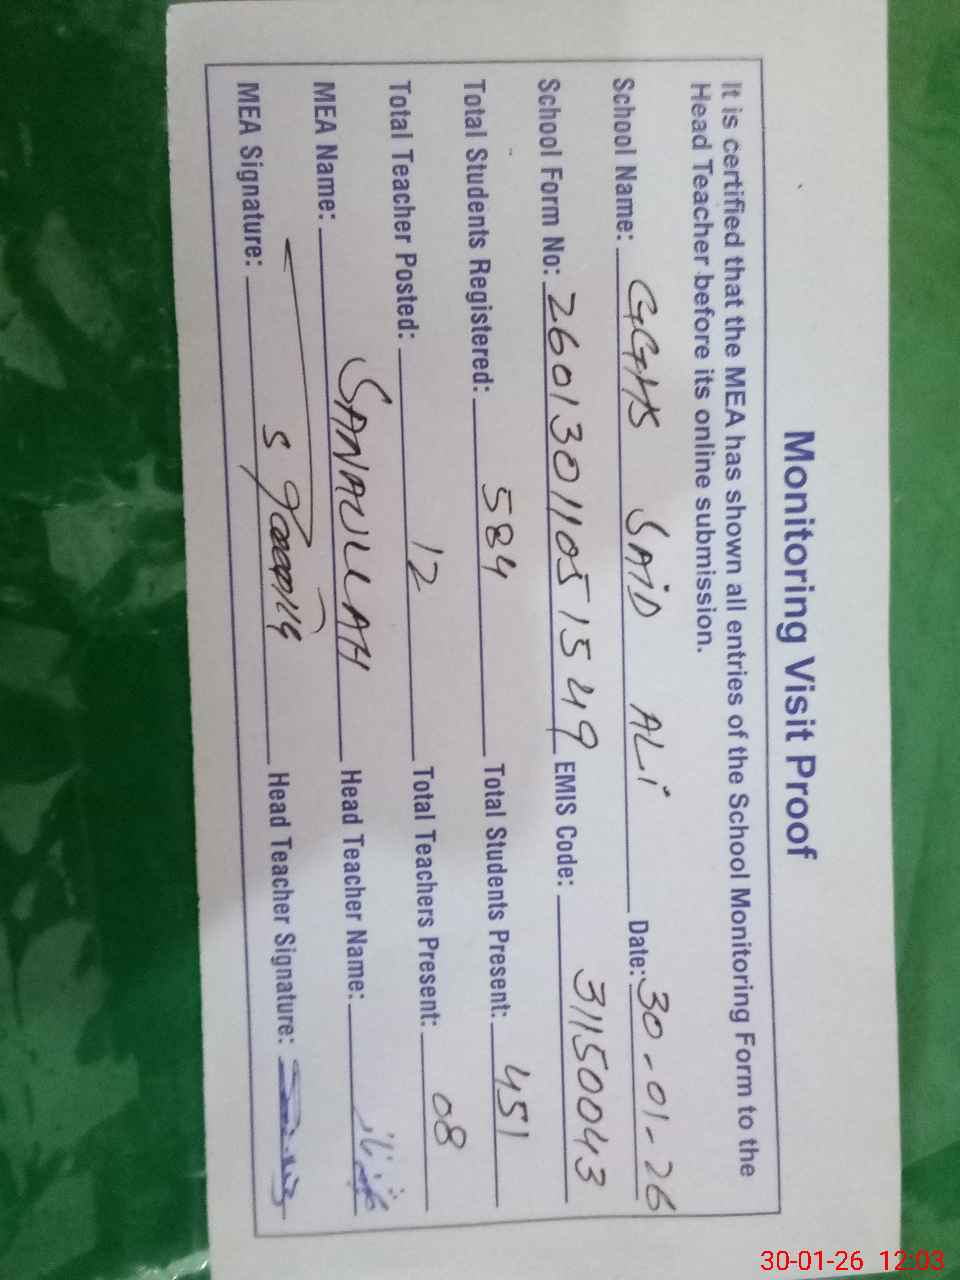 Monitoring Visit Proof
It is certified that the MEA has shown all entries of the School Monitoring Form to the
Head Teacher before its online submission.
School Name: GGHS SAID ALI Date: 30-01-26
School Form No: 260130110515549 EMIS Code: 31150043
Total Students Registered: 584 Total Students Present: 451
Total Teacher Posted: 12 Total Teachers Present: 08
MEA Name: SANAULLAH Head Teacher Name:
MEA Signature: Head Teacher Signature:
30-01-26 12:03